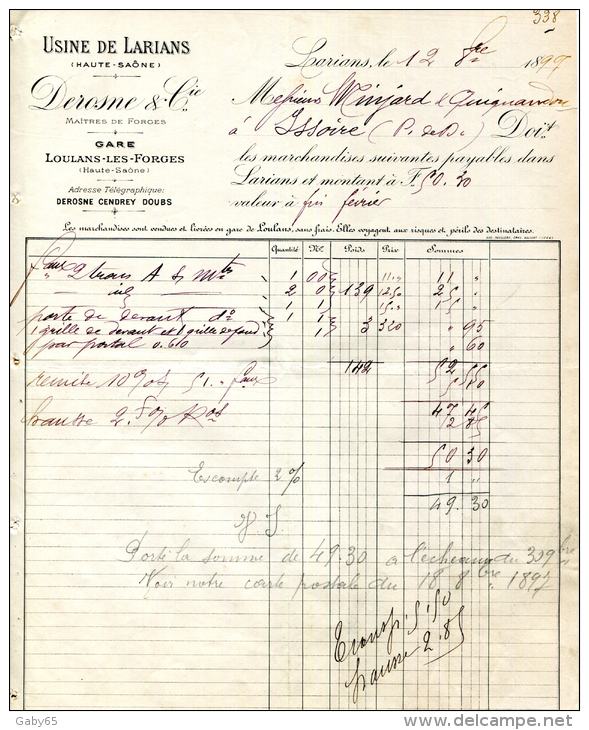 338
USINE DE LARIANS
(HAUTE-SAÔNE)
Derosne & Cie
MAÎTRES DE FORGES
GARE
LOULANS-LES-FORGES
(HAUTE-SAÔNE)
Adresse Télégraphique:
DEROSNE CENDREY DOUBS
Larians, le 12 8bre 1897
Messieurs Minjard &
à Issoire (P. de D.) Doivt
les marchandises suivantes payables dans
Larians et montant à F. 50.30
valeur à fin février
Les marchandises sont vendues et livrées en gare de Loulans, sans frais. Elles voyagent aux risques et périls des destinataires.
Quantité No Poids Prix Sommes
1 00 11 " 11 "
2 0 139 12.50 25 "
porte de devant do 1 1 15 " 15 "
1 grille de devant et 1 grille de fond 1 1 3 320 " 95
par portal 0.60 " 60
142 52 55
remise 10 % 51. 5 10
47 45
hausse 2. % 2 85
50 30
Escompte 2% 1 "
49.30
Porté la somme de 49.30 a l'échéance du
Voir notre carte postale du 18 8bre 1897
Transp. 5.50
hausse 2.85
Gaby65
delcampe.net